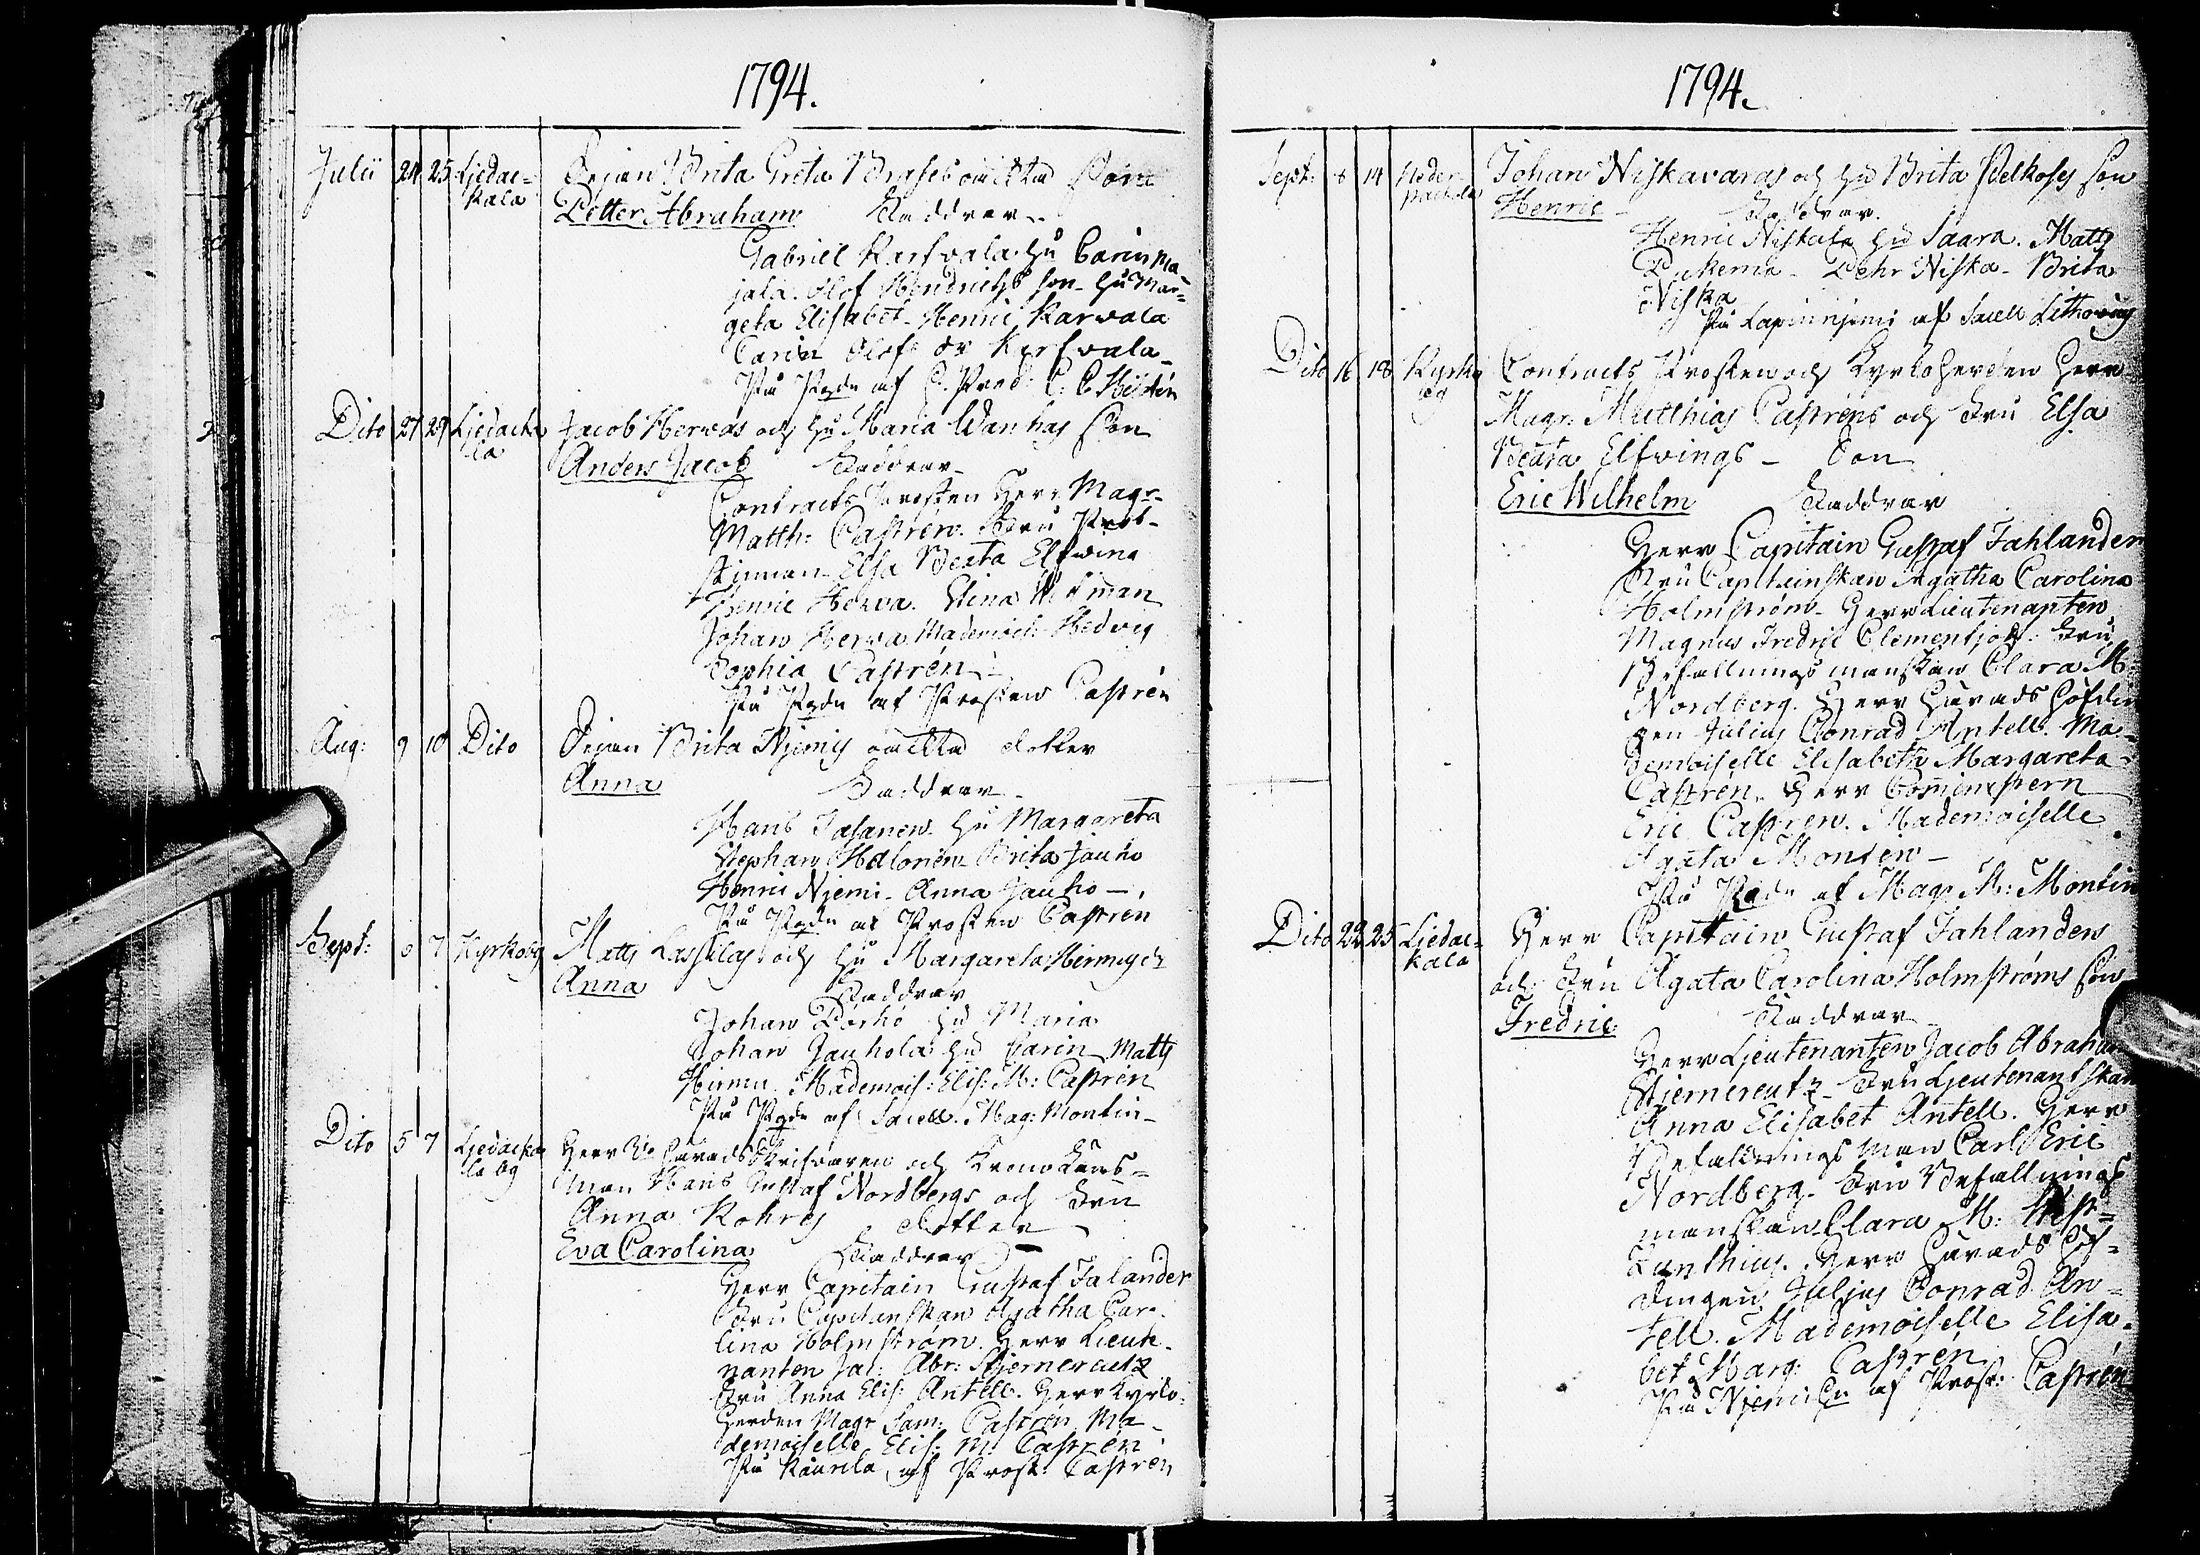 1794.
Julii 24 25 Ljedac=
kala
Pejan Brita Greta Brases oäckta Son
Petter Abraham Faddrar
Gabriel Karfvala hu Carin Ma=
jala. Olof Hendrichs son hu Mar=
geta Elisabet Henric Karvala
Carin Olofs dr Karfvala
På Pgdn af C. Pred: C. C. Heldén
Dito 27 29 Ljedacka
la
Jacob Hervas och hu Maria Wanhas Son
Anders Jacob Faddrar
Contracts Prosten Herr Magr
Matth: Castrén. Fru Prob=
stinnan Elsa Beata Elfving
Henric Herva. Elina
Johan Herva Mademois: Hedvig
Sophia Castrén
På Pgdn af Prosten Castrén
Aug: 9 10 Dito
Pejan Brita Njemis oäckta dotter
Anna Faddrar
Hans Tasanen hu Margareta
Stephan Halonen Brita Jauho
Henric Njemi Anna Jauho
På Pgdn af Prosten Castrén
Sept: 6 7 Kyrkoby
Matts Lassilas och hu Margareta Hirmus dr
Anna Faddrar
Johan Pörhö hu Maria
Johan Jauhola hu Carin Matts
Hirmu. Mademois: Elis: M: Castrén
På Pgdn af Sacell. Mag: Montin
Dito 5 7 Ljedacka
la by
Herr V: HäradsSkrifvaren och Krono Läns=
man Hans Gustaf Nordbergs och Fru
Anna Rohres dotter
Eva Carolina Faddrar
Herr Capitain Gustaf Falander
Fru Capitanskan Agatha Caro
lina Holmström. Herr Lieute
nanten Jac: Abr: Stjerncreutz
Fru Anna Elis: Antell. Herr Kyrko=
herden Magr Sam: Castrén Ma=
demoiselle Elis: M: Castrén
På Kaurila af Prost: Castrén
1794.
Sept: 8 14 Neder
Paakola
Johan Niskavaras och hu Brita Pelkoses son
Henric Faddrar.
Henric Niskala hu Saara. Matts
Pukema Pehr Niska Brita
Niska
På Lapinnjemi af Sacell Lithovius
Dito 16 18 Kyrko
by
Contracts Prosten och Kyrkoherden Herr
Magr. Matthias Castréns och Fru Elsa
Beata Elfvings Son
Eric Wilhelm Faddrar
Herr Capitain Gustaf Fahlander
Fru Capitainskan Agatha Carolina
Holmström Herr Lieutenanten
Magnus Fredric Clementjoff: Fru
Befallningsmanskan Clara M:
Nordberg. Herr Härads Höfdin
gen Julius Conrad Antell. Ma=
demoiselle Elisabeth Margareta
Castrén Herr Comministern
Eric Castren. Mademoiselle
Agata Monten
På Pgdn af Magr M: Montin
Dito 22 25 Ljedac=
kala
Herr Capitain Gustaf Fahlanders
och Fru Agata Carolina Holmströms son
Fredric Faddrar
Herr Lieutenanten Jacob Abraham
Stjerncreutz Fru Lieutenantskan
Anna Elisabet Antell. Herr
Befallnings man Carl Eric
Nordberg. Fru Befallnings
manskan Clara M:
Herr Härads Höf=
dingen Julius Conrad An=
tell. Mademoiselle Elisa=
bet Marg: Castrén
På Njemi af Prost: Castrén